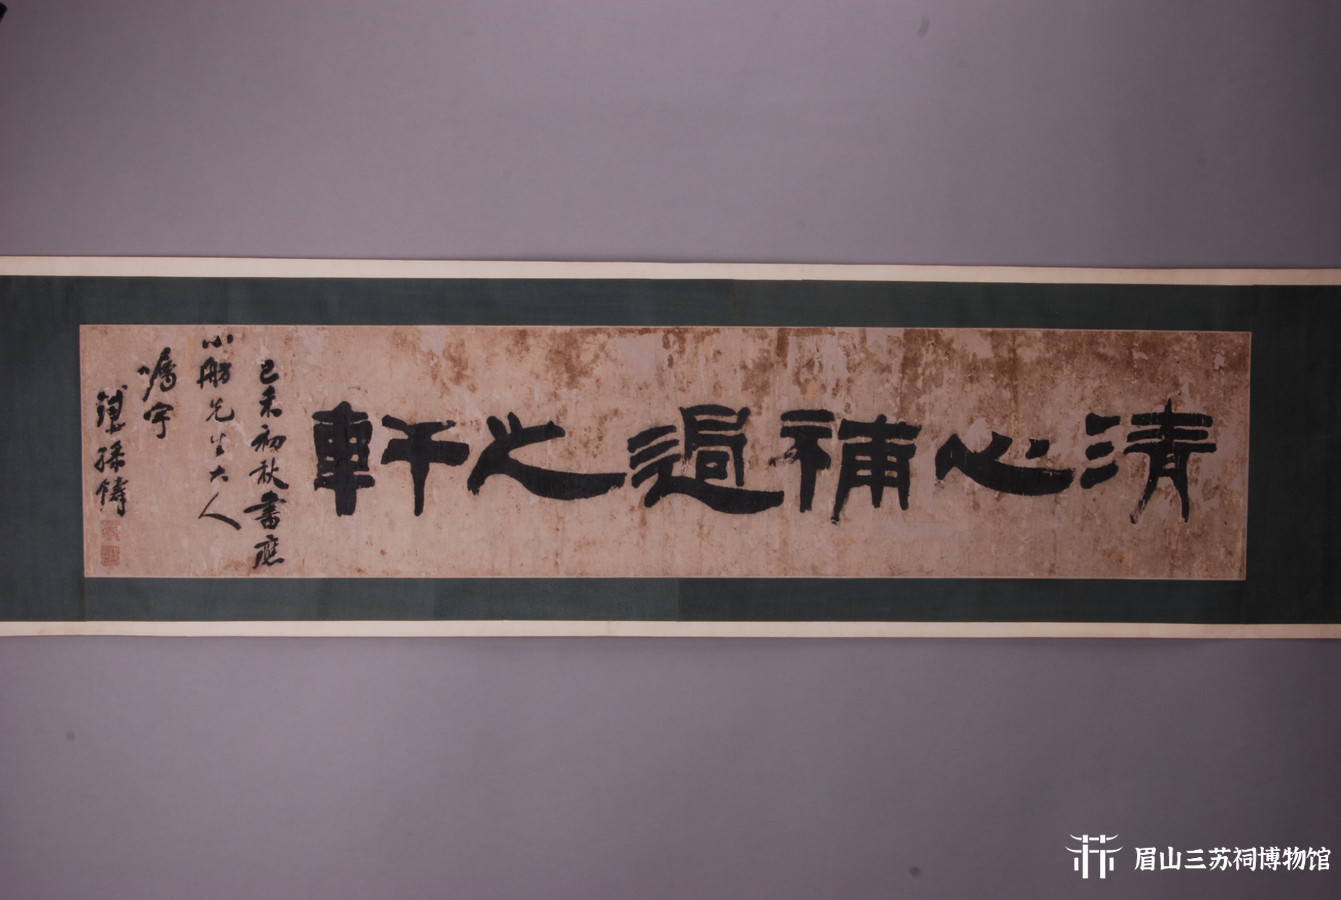 清心補過之軒
己未初秋書應
小舫先生大人
囑字
孫鑄
眉山三苏祠博物馆